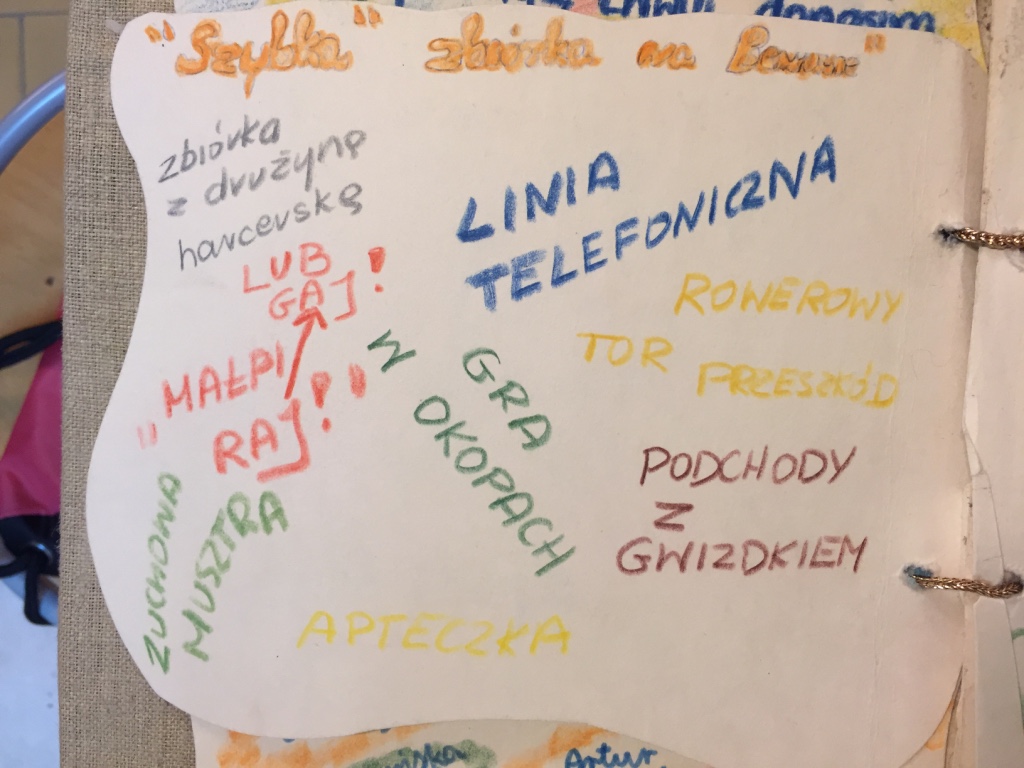 donosim
"Szybka" zbiórka na Bemowie"
zbiórka
z drużyną
harcerską
LINIA
TELEFONICZNA
LUB
GAJ!
"MAŁPI
RAJ!"
W OKOPACH
GRA
ROWEROWY
TOR PRZESZKÓD
PODCHODY
Z
GWIZDKIEM
ZUCHOWA
MUSZTRA
APTECZKA
Artur